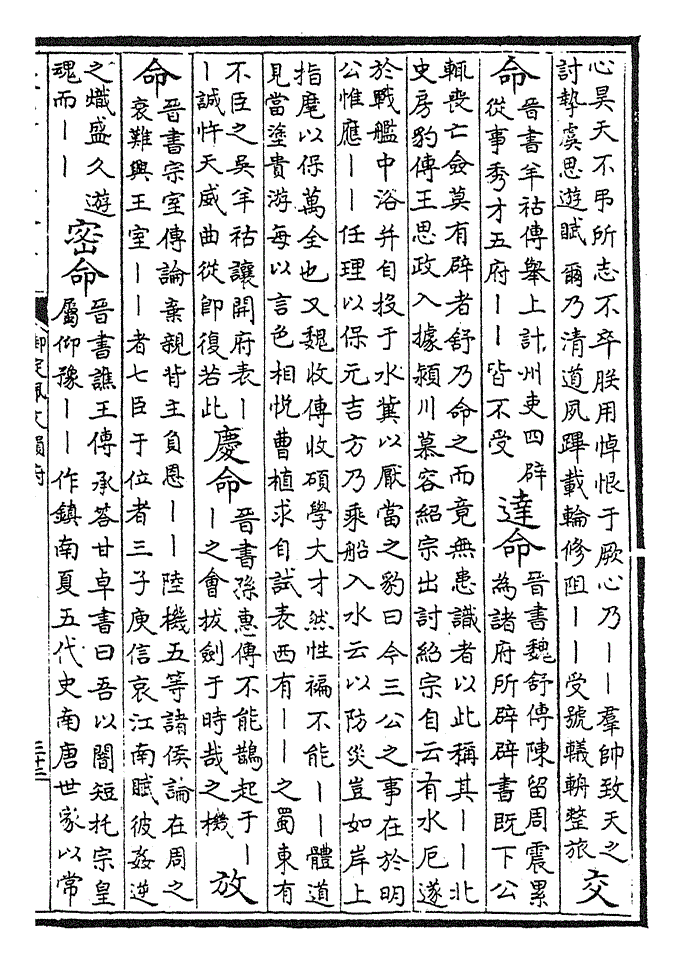 心昊天不弔所志不卒朕用悼恨于厥心乃丨丨羣帥致天之
討摯虞思遊賦爾乃清道夙蹕載輪修阻丨丨受號轙輈整旅
交
命
晉書羊祜傳舉上計州吏四辟
從事秀才五府丨丨皆不受
達命
晉書魏舒傳陳留周震累
為諸府所辟辟書既下公
輒喪亡僉莫有辟者舒乃命之而竟無患識者以此稱其丨丨北
史房豹傳王思政入據潁川慕容紹宗出討紹宗自云有水厄遂
於戰艦中浴并自投于水冀以厭當之豹曰今三公之事在於明
公惟應丨丨任理以保元吉方乃乘船入水云以防災豈如岸上
指麾以保萬全也又魏收傳收碩學大才然性褊不能丨丨體道
見當塗貴游每以言色相悅曹植求自試表西有丨丨之蜀東有
不臣之吳羊祜讓開府表丨
丨誠忤天威曲從即復若此
慶命
晉書孫惠傳不能鵲起于丨
丨之會拔劍于時哉之機
放
命
晉書宗室傳論棄親背主負恩丨丨陸機五等諸侯論在周之
衰難興王室丨丨者七臣于位者三子庾信哀江南賦彼姦逆
之熾盛久遊
魂而丨丨
密命
晉書譙王傳承答甘卓書曰吾以闇短托宗皇
屬仰豫丨丨作鎮南夏五代史南唐世家以常
御定佩文韻府